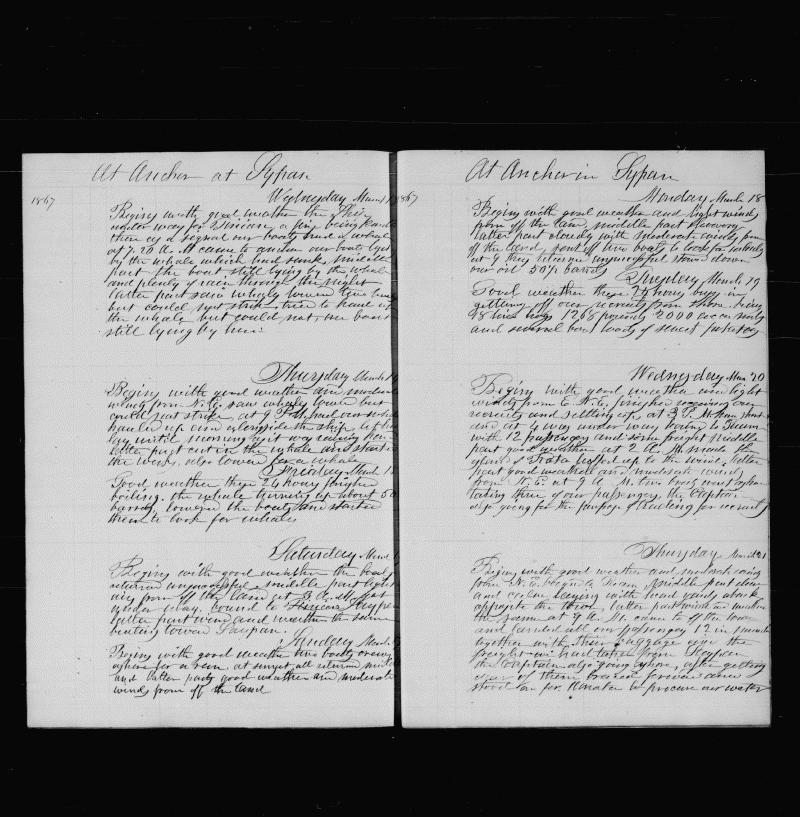 At Anchor at Sypan
1867
Wednesday March 13
Begins with good weather the Ship
under way for being
there is a signal our boats struck a whale
at 7.20 A. M came to anchor our boats lyes
by the whale which had sunk, middle
part the boat still lying by the whale
and plenty of rain through the night
latter part saw whales lowered two boats
but could not strike tried to haul up
the whale but could not, one boat
still lying by her.
Thursday March 14
Begins with good weather and moderate
winds from N. E. saw whales lowered but
could not strike, at 9 P. M. our whale
hauled up and alongside the ship
lay until morning it was raining
latter part cut in the whale and started
the works, also lowered for a whale
Friday March 15
Good weather these 24 hours finished
boiling. the whale turning up about 50
barrels, lowered the boats and started
them to look for whales
Saturday March
Begins with good weather the boats
returned unsuccessful middle part light
airs from off the land at 5 A. M. got
under way. bound to
latter part wind and weather the same
beating toward Saypan.
Sunday March
Begins with good weather two boats crews
ashore for a run. at sunset all returned middle
and latter parts good weather and moderate
winds from off the land
At Anchor in Sypan
1867
Monday March 18
Begins with good weather and light winds
from off the land, middle part
latter part cloudy with moderate winds from
off the land, sent off two boats to look for whales
at 9 they returned unsuccessful stowed down
our oil 50½ barrels
Tuesday March 19
Good weather these 24 hours busy in
getting off our recruits from shore, being
18 live hogs 1268 pounds 2000 cocoa nuts
and several boat loads of sweet potatoes
Wednesday Mar 20
Begins with good weather and light
winds from to N. E, finished our
recruits and settling up, at 3 P. M.
and at 4 was under way bound to Guam
with 12 passengers and some freight middle
part good weather at 2 A. M. made the
Island of Rota luffed up to the wind. latter
part good weather and moderate winds
from N. E. at 9 A. M. two boats went ashore
taking three of our passengers, the Captain
also going for the purpose of trading for recruits
Thursday March 21
Begins with good weather and moderate winds
from N. E. bound to Guam, Middle part clear
and calm laying with head yards aback
opposite the town, latter part wind and weather
the same at 9 A. M. came to off the town
and landed all our passengers 12 in number
together with their baggage and the
freight we had taken from Saypan
the Captain also going ashore, after getting
clear of them braced forward and
stood on for Umatac to procure our water